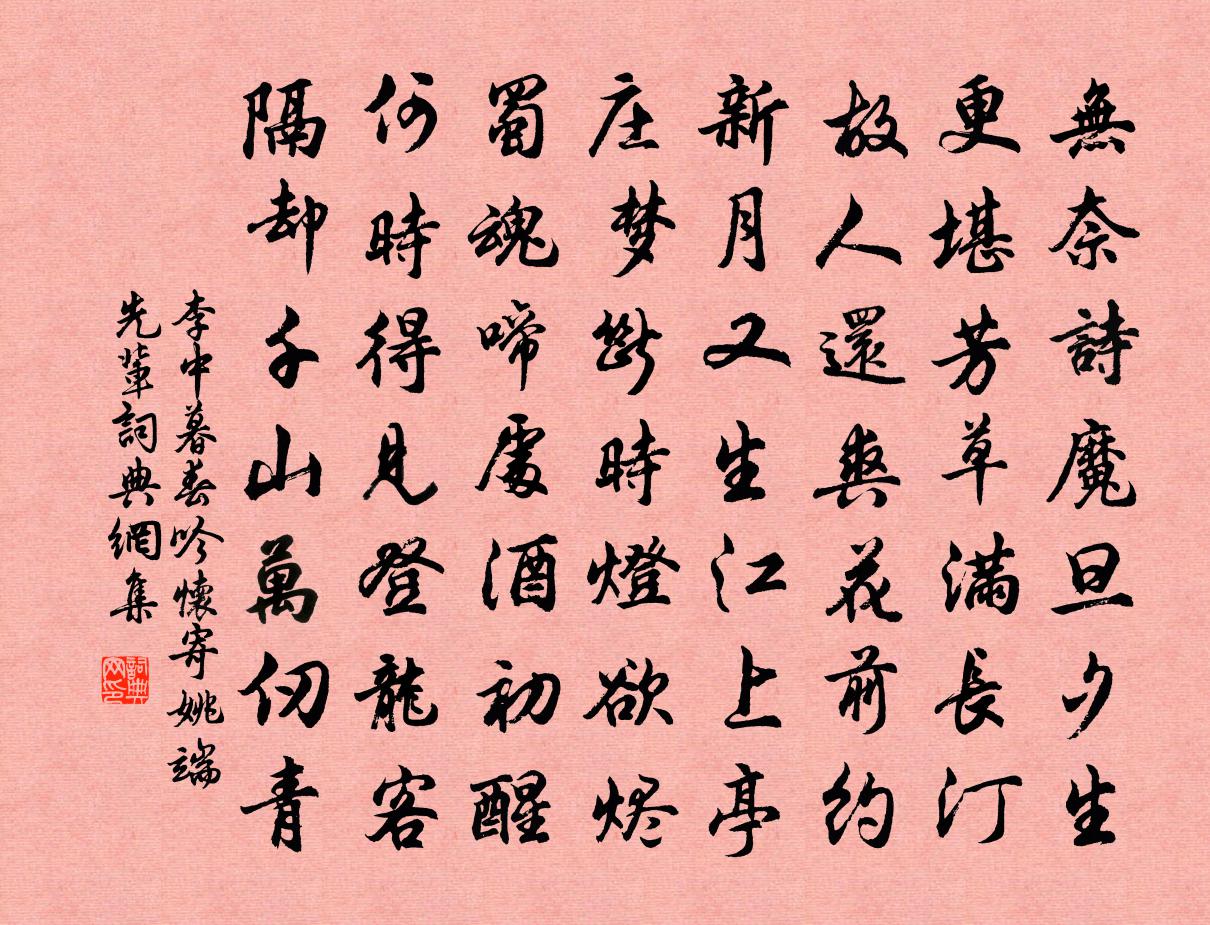 無奈詩魔旦夕生
更堪芳草滿長汀
故人還爽花前約
新月又生江上亭
庄梦斷時燈欲烬
蜀魂啼處酒初醒
何時得見登龍客
隔却千山萬仞青
李中暮春吟懷寄姚端
先輩詞典網集
詞典网印